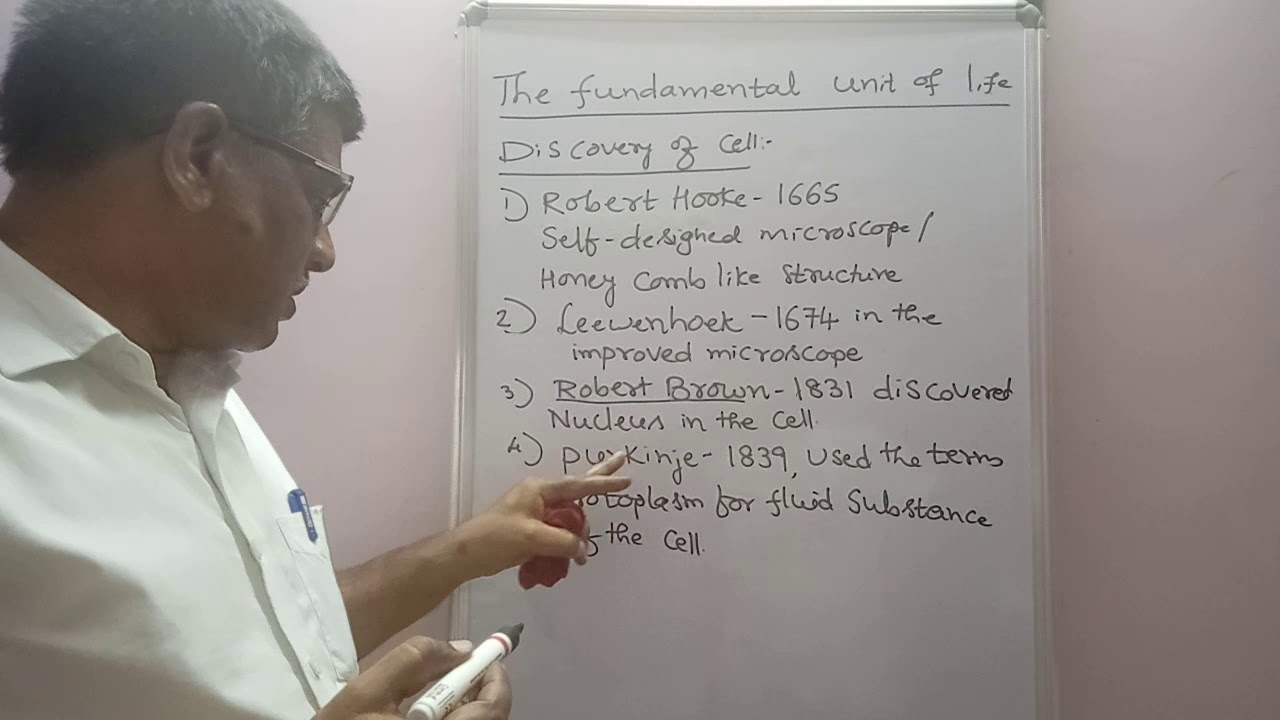 The fundamental unit of life
Discovery of Cell:-
1) Robert Hooke - 1665
Self-designed microscope/
Honey Comb like structure
2) Leewenhoek - 1674 in the
improved microscope
3) Robert Brown - 1831 discovered
Nucleus in the Cell.
4) Purkinje - 1839, used the term
otoplasm for fluid Substance
the Cell.